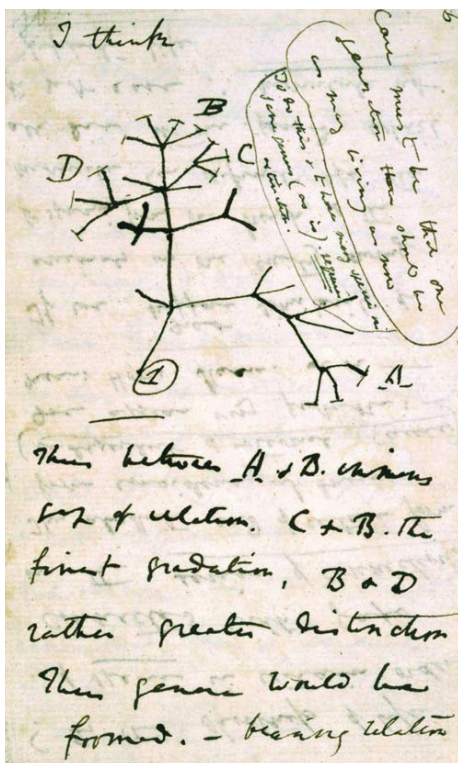 I think
Case must be that one
generation then should be
as many living as now
To do this & to have many species in
same genus (as is). requires
extinction.
B
D
C
1
A
Thus between A & B. immens
gap of relation. C & B. the
finest gradation, B & D
rather greater distinction
Thus genera would be
formed. — bearing relation